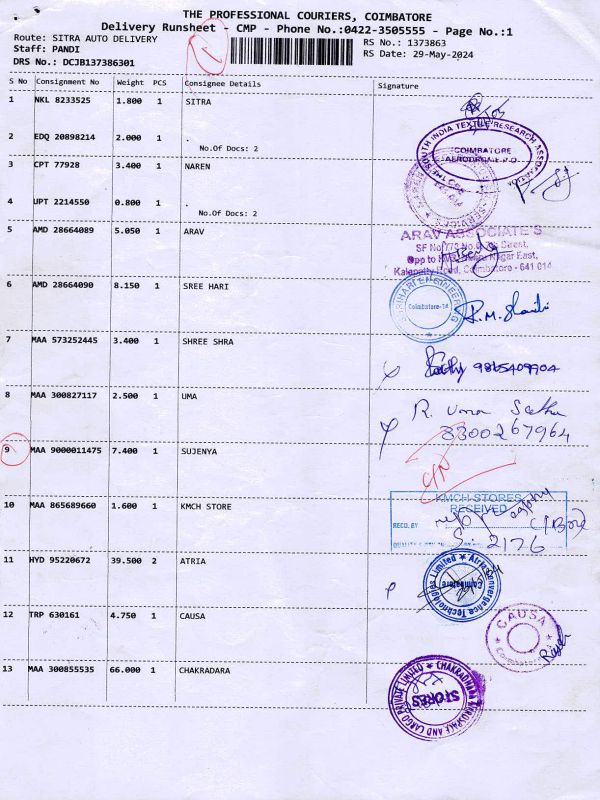 THE PROFESSIONAL COURIERS, COIMBATORE
Delivery Runsheet - CMP - Phone No.:0422-3505555 - Page No.:1
Route: SITRA AUTO DELIVERY
RS No.: 1373863
Staff: PANDI
RS Date: 29-May-2024
DRS No.: DCJB137386301
S No Consignment No Weight PCS Consignee Details Signature
1 NKL 8233525 1.800 1 SITRA
THE SOUTH INDIA TEXTILE RESEARCH ASSOCIATION
COIMBATORE
AERODROME P.O.
2 EDQ 20898214 2.000 1 .
No.Of Docs: 2
3 CPT 77928 3.400 1 NAREN
4 UPT 2214550 0.800 1 .
No.Of Docs: 2
5 AMD 28664089 5.050 1 ARAV
ARAV ASSOCIATE'S
Street,
Nagar East,
Kalapatty Road, Coimbatore - 641 014
6 AMD 28664090 8.150 1 SREE HARI
ENGINEERING
Coimbatore-14
7 MAA 573252445 3.400 1 SHREE SHRA
9865409904
8 MAA 300827117 2.500 1 UMA
R. Uma
8300267964
9 MAA 9000011475 7.400 1 SUJENYA
10 MAA 865689660 1.600 1 KMCH STORE
KMCH STORES
RECEIVED
RECD. BY
2176
11 HYD 95220672 39.500 2 ATRIA
Atria Convergence Technologies Limited
Coimbatore
12 TRP 630161 4.750 1 CAUSA
CAUSA
Coimbatore
13 MAA 300855535 66.000 1 CHAKRADARA
CHAKRADHARA AEROSPACE AND CARGO PRIVATE LIMITED
STORES